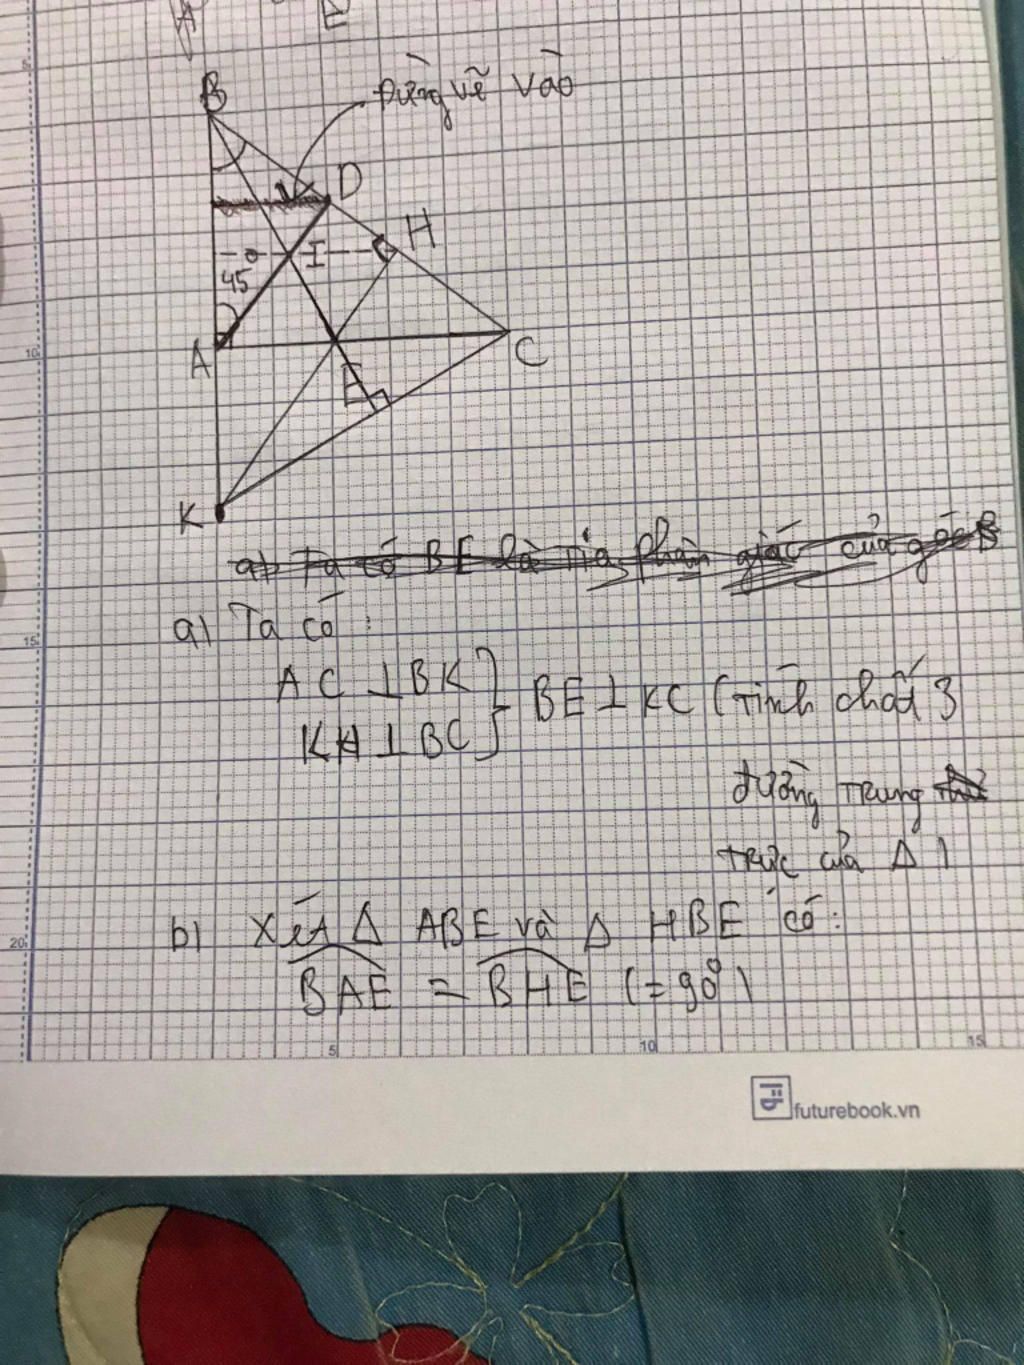 A E
B
Đừng vẽ vào
D
H
I
45°
A
C
E
K
a) Ta có BE là tia phân giác của góc B
a) Ta có:
AC ⊥ BK } BE ⊥ KC (Tính chất 3
KH ⊥ BC
đường trung
trực của Δ)
b) Xét Δ ABE và Δ HBE có:
BAE = BHE (= 90°)
5
10
15
20
5
10
15
futurebook.vn